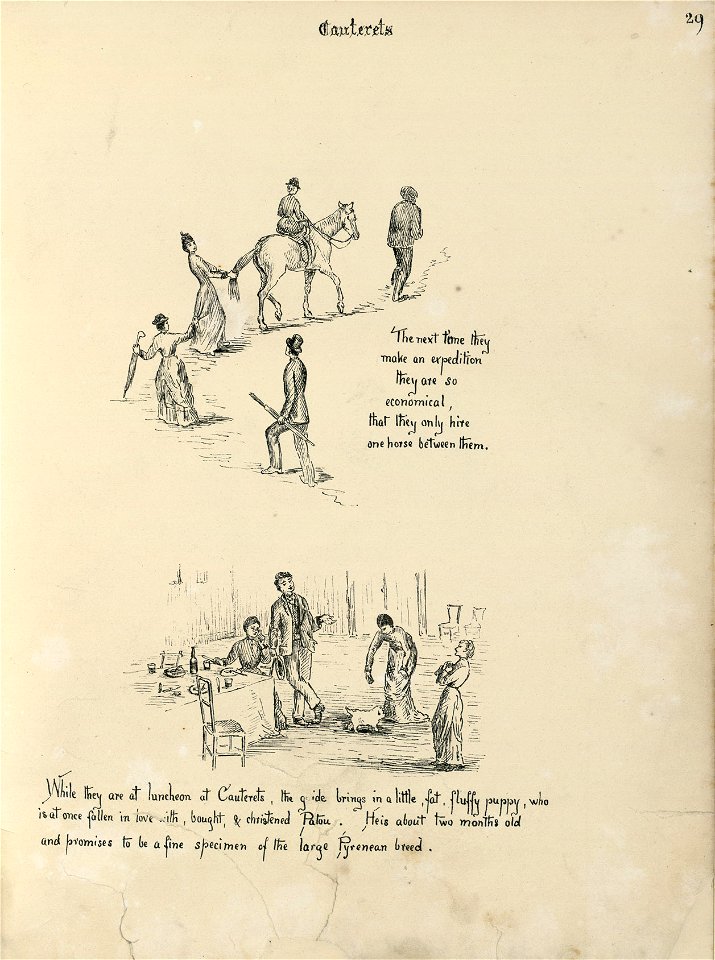 Cauterets
29
The next time they
make an expedition
they are so
economical,
that they only hire
one horse between them.
While they are at luncheon at Cauterets, the guide brings in a little, fat, fluffy puppy, who
is at once fallen in love with, bought, & christened Patou. He is about two months old
and promises to be a fine specimen of the large Pyrenean breed.